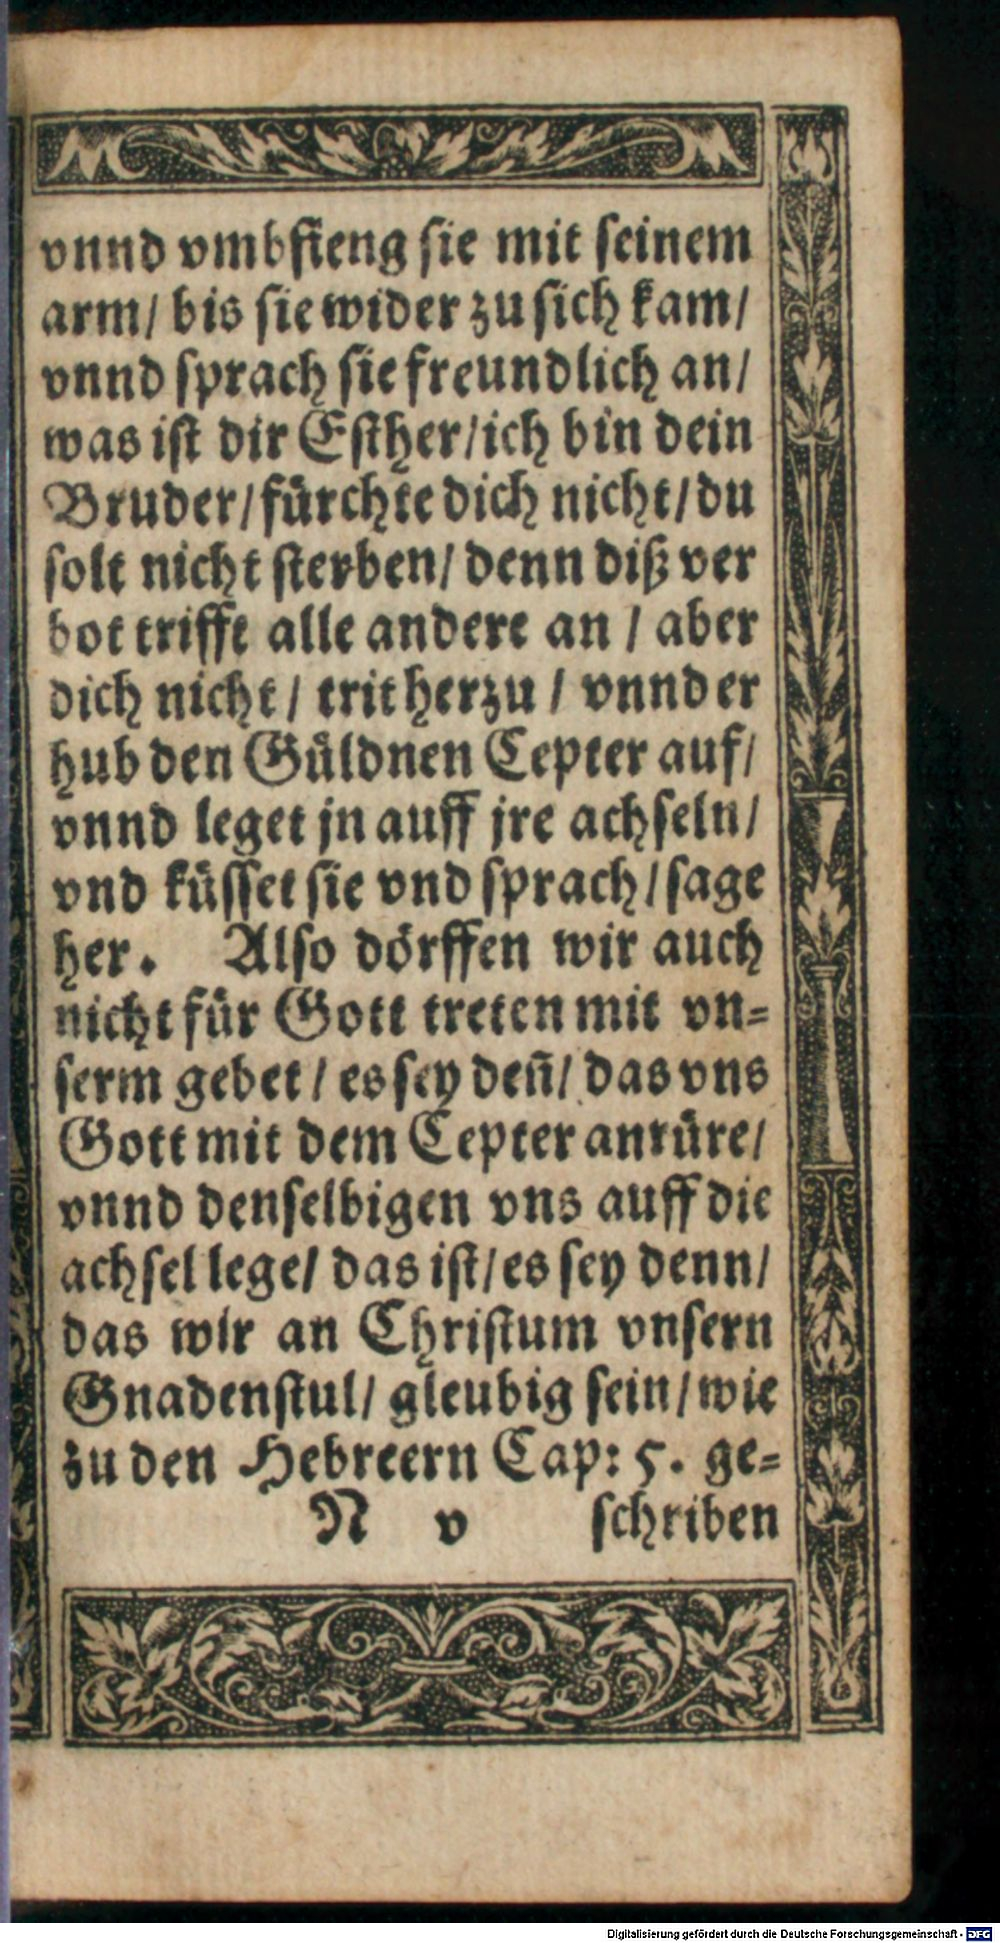 vnnd vmbfieng sie mit seinem
arm/ bis sie wider zu sich kam/
vnnd sprach sie freundlich an/
was ist dir Esther/ich bin dein
Bruder/fürchte dich nicht/du
solt nicht sterben/ denn diß ver
bot trifft alle andere an / aber
dich nicht/ trit herzu / vnnd er
hub den Güldnen Cepter auf/
vnnd leget jn auff jre achseln/
vnd küsset sie vnd sprach/sage
her. Also dörffen wir auch
nicht für Gott treten mit vn=
serm gebet/ es sey deñ/ das vns
Gott mit dem Cepter anrüre/
vnnd denselbigen vns auff die
achsel lege/ das ist/es sey denn/
das wir an Christum vnsern
Gnadenstul/ gleubig sein/wie
zu den Hebreern Cap: 5. ge=
N v schriben
Digitalisierung gefördert durch die Deutsche Forschungsgemeinschaft - DFG